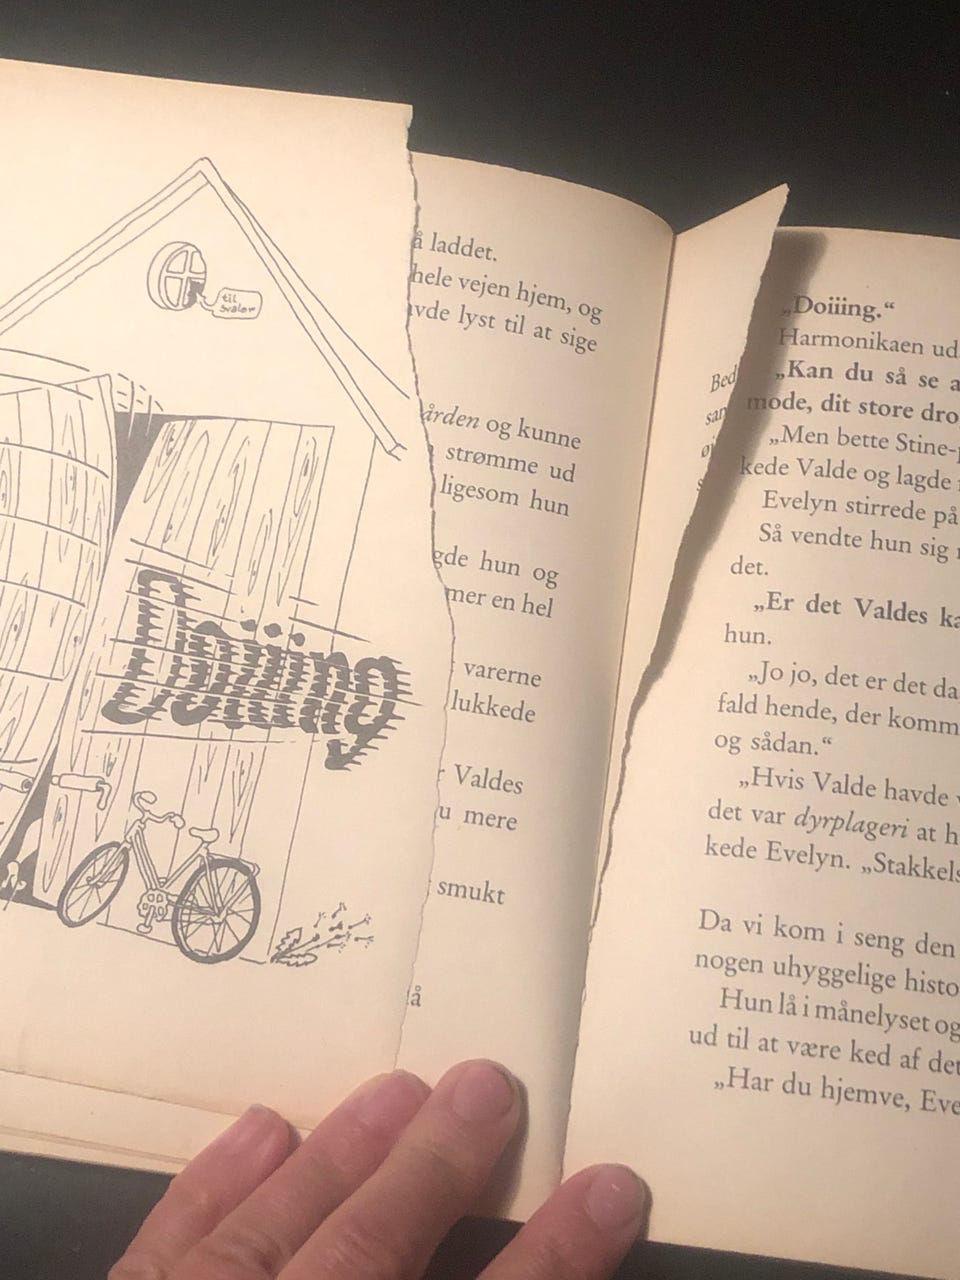 til
svaler
Doiiing
å laddet.
hele vejen hjem, og
vde lyst til at sige
ården og kunne
strømme ud
ligesom hun
gde hun og
mer en hel
varerne
lukkede
r Valdes
u mere
smukt
lå
Bed
san
„Doiiing.“
Harmonikaen ud
„Kan du så se a
mode, dit store dro
„Men bette Stine-p
kede Valde og lagde
Evelyn stirrede på
Så vendte hun sig
det.
„Er det Valdes ka
hun.
„Jo jo, det er det da
fald hende, der komm
og sådan.“
„Hvis Valde havde v
det var dyrplageri at h
kede Evelyn. „Stakkels
Da vi kom i seng den
nogen uhyggelige histo
Hun lå i månelyset og
ud til at være ked af det
„Har du hjemve, Eve